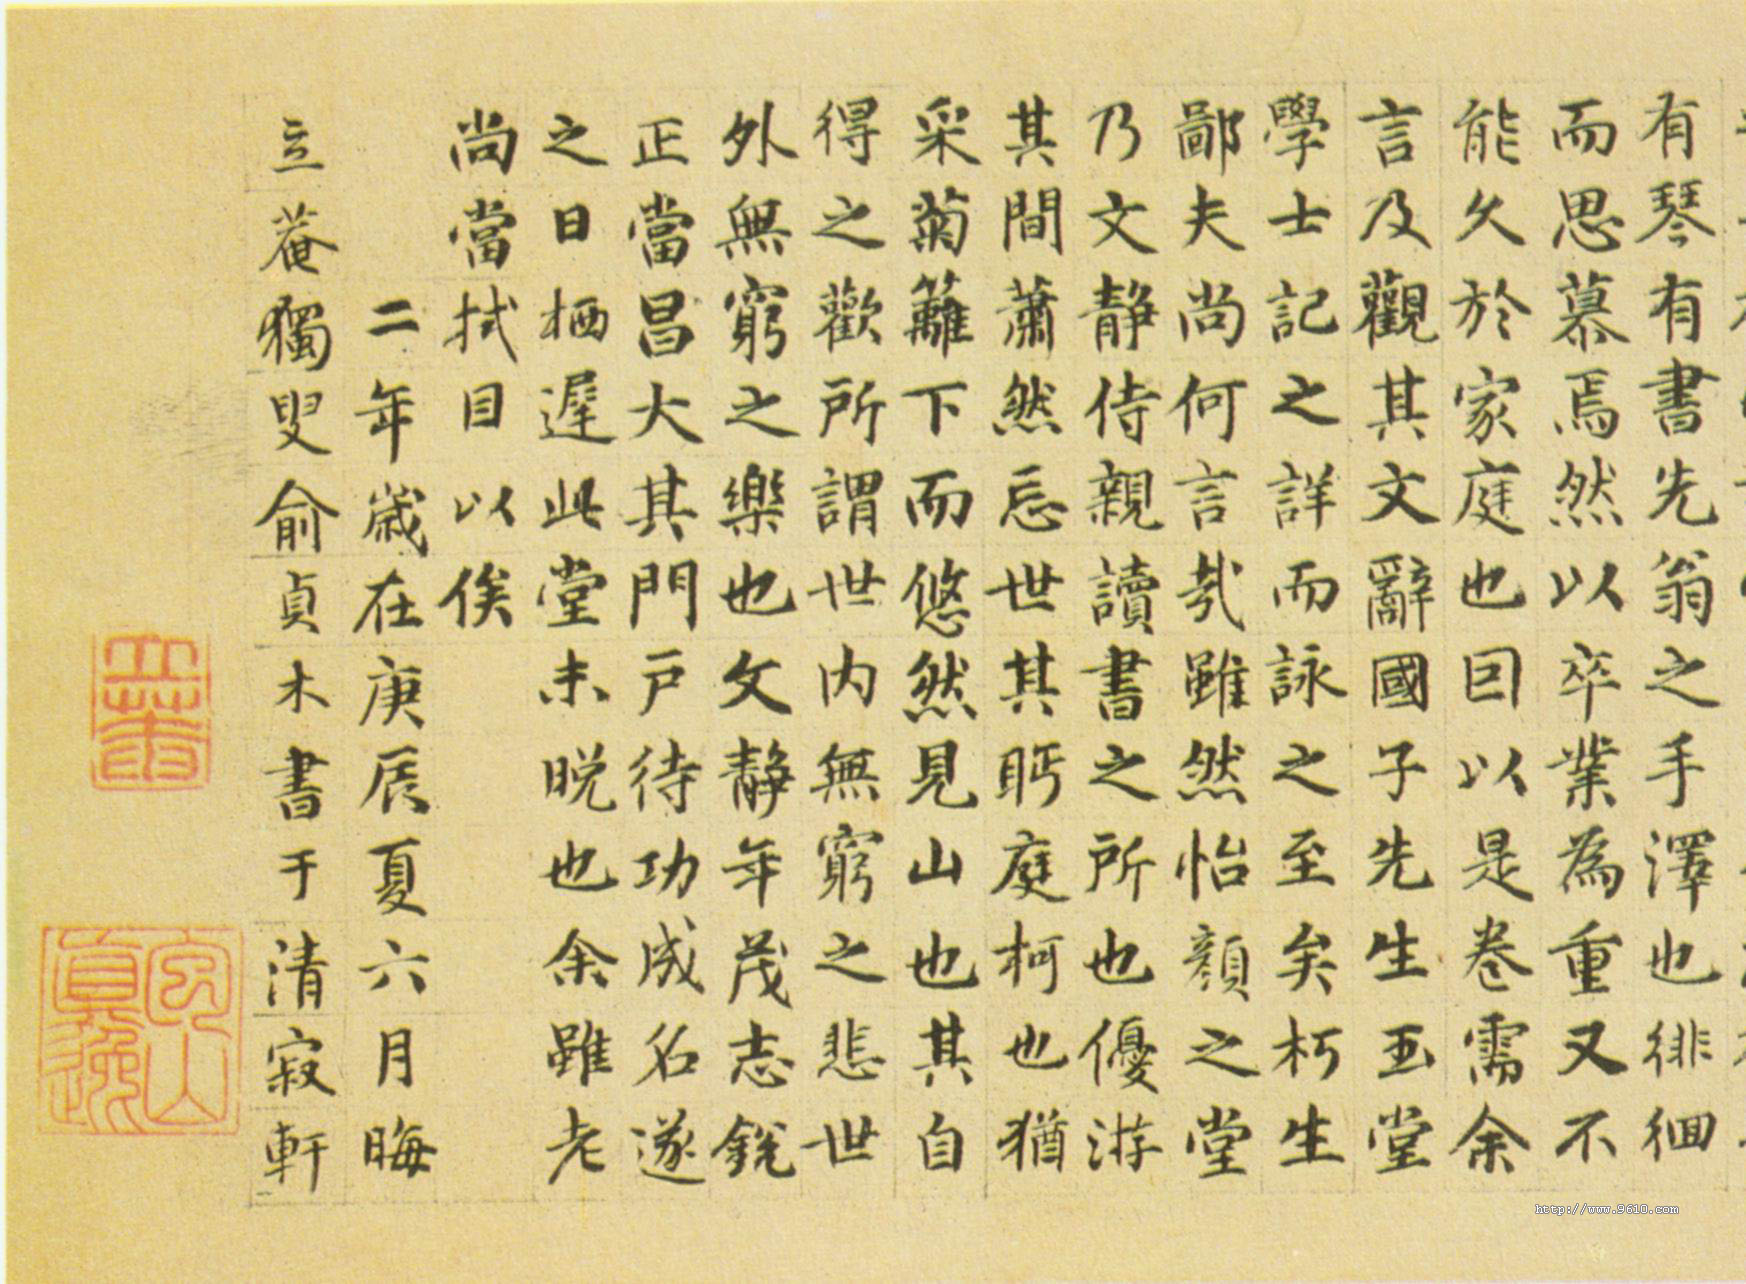 有琴有書先翁之手澤也徘徊
而思慕焉然以卒業為重又不
能久於家庭也囙以是卷需余
言及觀其文辭國子先生玉堂
學士記之詳而詠之至矣朽生
鄙夫尚何言哉雖然怡顏之堂
乃文靜侍親讀書之所也優游
其間蕭然忘世其眄庭柯也猶
采菊籬下而悠然見山也其自
得之歡所謂世内無窮之悲世
外無窮之樂也文靜年茂志銳
正當昌大其門戶待功成名遂
之日栖遲此堂未晚也余雖老
尚當拭目以俟
二年歲在庚辰夏六月晦
立菴獨叟俞貞木書于清寂軒
http://www.9610.com